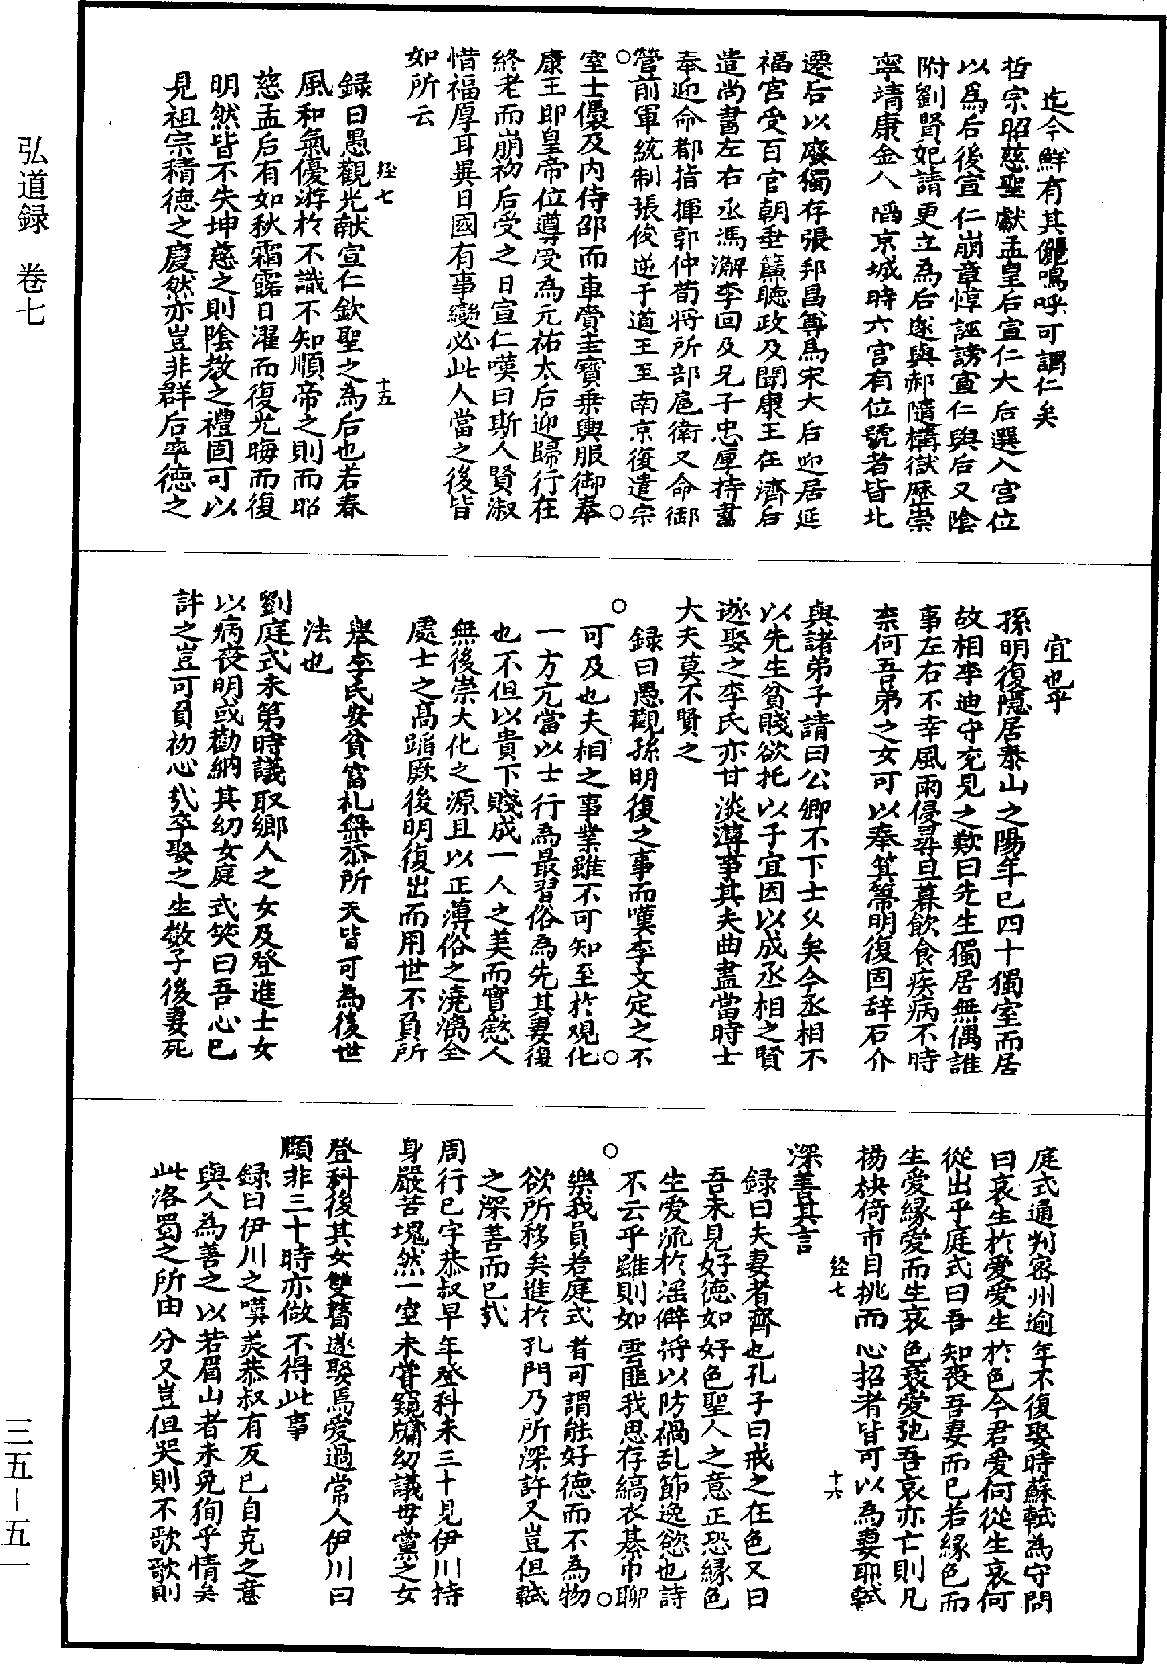 弘道録　卷七
三五－五一
迄今鮮有其儷嗚呼可謂仁矣
哲宗昭慈聖獻孟皇后宣仁大后選入宮位
以爲后後宣仁崩章惇誣謗宣仁與后又陰
附劉賢妃請更立為后遂與郝隨構獄歷崇
寧靖康金人陷京城時六宮有位號者皆北
遷后以廢獨存張邦昌尊爲宋太后迎居延
福宮受百官朝垂簾聽政及聞康王在濟后
遣尚書左右丞馮澥李回及兄子忠厚持書
奉迎命都指揮郭仲荀將所部扈衛又命御
營前軍統制張俊逆于道王至南京復遣宗
室士㒟及内侍邵而車賫圭寶乗輿服御奉
康王即皇帝位尊受為元祐太后迎歸行在
終老而崩初后受之日宣仁嘆曰斯人賢淑
惜福厚耳異日國有事變必此人當之後皆
如所云
經七
十五
録曰愚觀光献宣仁欽聖之為后也若春
風和氣優游於不識不知順帝之則而昭
慈孟后有如秋霜露日濯而復光晦而復
明然皆不失坤慈之則陰教之禮固可以
見祖宗積德之慶然亦豈非群后率德之
宜也乎
孫明復隱居泰山之陽年已四十獨室而居
故相李迪守兖見之歎曰先生獨居無偶誰
事左右不幸風雨侵尋旦暮飲食疾病不時
柰何吾弟之女可以奉箕箒明復固辞石介
與諸弟子請曰公卿不下士久矣今丞相不
以先生貧賤欲托以子宜因以成丞相之賢
遂娶之李氏亦甘淡薄事其夫曲盡當時士
大夫莫不賢之
録曰愚觀孫明復之事而嘆李文定之不
可及也夫相之事業雖不可知至於观化
一方亢當以士行為最習俗為先其妻復
也不但以貴下賤成一人之美而實慰人
無後崇大化之源且以正薄俗之澆漓全
處士之高蹈厥後明復出而用世不負所
舉李氏安貧富札榘恭所天皆可為後世
法也
劉庭式未第時議取鄉人之女及登進士女
以病䘮明或勸納其幼女庭式笑曰吾心已
許之豈可負初心哉卒娶之生數子後妻死
庭式通判密州逾年不復娶時蘇軾為守問
曰哀生於愛愛生於色今君愛何從生哀何
從出乎庭式曰吾知䘮吾妻而已若縁色而
生愛縁愛而生哀色衰愛弛吾哀亦亡則凡
揚袂倚市目挑而心招者皆可以為妻耶軾
深善其言
經七
十六
録曰夫妻者齊也孔子曰戒之在色又曰
吾未見好德如好色聖人之意正恐縁色
生愛流於淫僻将以防禍乱節逸慾也詩
不云乎雖則如雲匪我思存縞衣綦巾聊
樂我員若庭式者可謂能好德而不為物
欲所移矣進於孔門乃所深許又豈但軾
之深善而已哉
周行已字恭叔早年登科未三十見伊川持
身嚴苦塊然一室未嘗窺牖幼議母黨之女
登科後其女雙瞽遂娶焉爱過常人伊川曰
頤非三十時亦做不得此事
録曰伊川之嘆羨恭叔有反已自克之意
與人為善之以若眉山者未免狥乎情矣
此洛蜀之所由分又豈但哭則不歌歌則